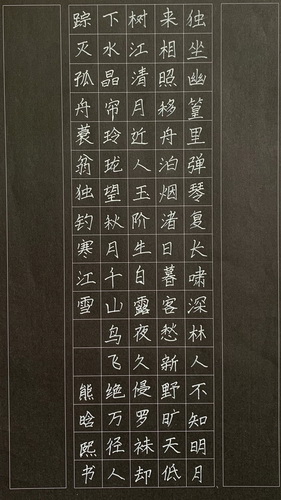 独坐幽篁里弹琴复长啸深林人不知明月
来相照移舟泊烟渚日暮客愁新野旷天低
树江清月近人玉阶生白露夜久侵罗袜却
下水晶帘玲珑望秋月千山鸟飞绝万径人
踪灭孤舟蓑翁独钓寒江雪 熊晗熙书